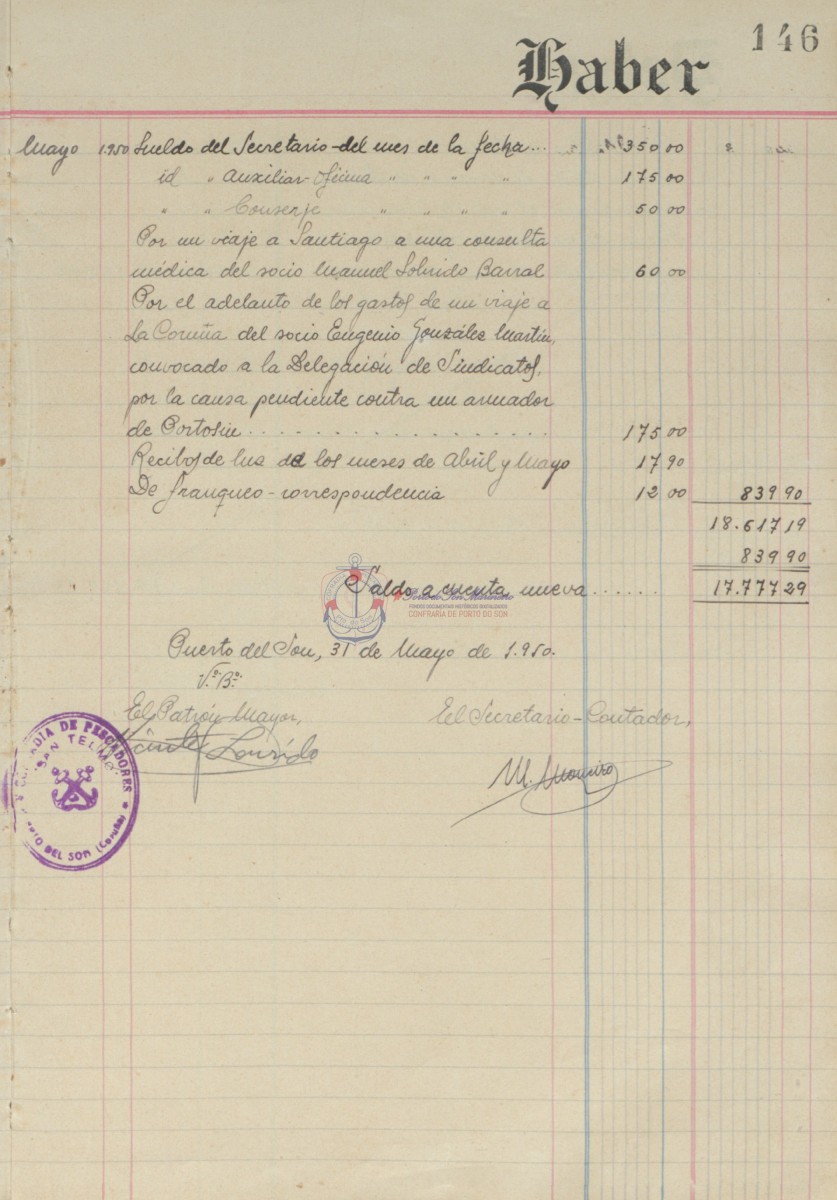 146
Haber
Mayo 1.950 Sueldo del Secretario del mes de la fecha... 350 00
id " Auxiliar-oficina " " " " 175 00
" " Conserje " " " " 50 00
Por un viaje a Santiago a una consulta
médica del socio Manuel Sobrido Barral 60 00
Por el adelanto de los gastos de un viaje a
La Coruña del socio Eugenio González Martín,
convocado a la Delegación de Sindicatos,
por la causa pendiente contra un armador
de Portosín . . . . . . . . . . . . . . . . . . 175 00
Recibos de luz de los meses de Abril y Mayo 17 90
De franqueo-correspondencia 12 00 839 90
18.617 19
839 90
Saldo a cuenta nueva ...... 17.777 29
FONDOS DOCUMENTAIS HISTÓRICOS DIXITALIZADOS
CONFRARÍA DE PORTO DO SON
Puerto del Son, 31 de Mayo de 1.950.
V.º B.º
El Patrón Mayor, El Secretario-Contador,
Vicente Lourido
M.
COFRADIA DE PESCADORES
"SAN TELMO"
PUERTO DEL SON (Coruña)